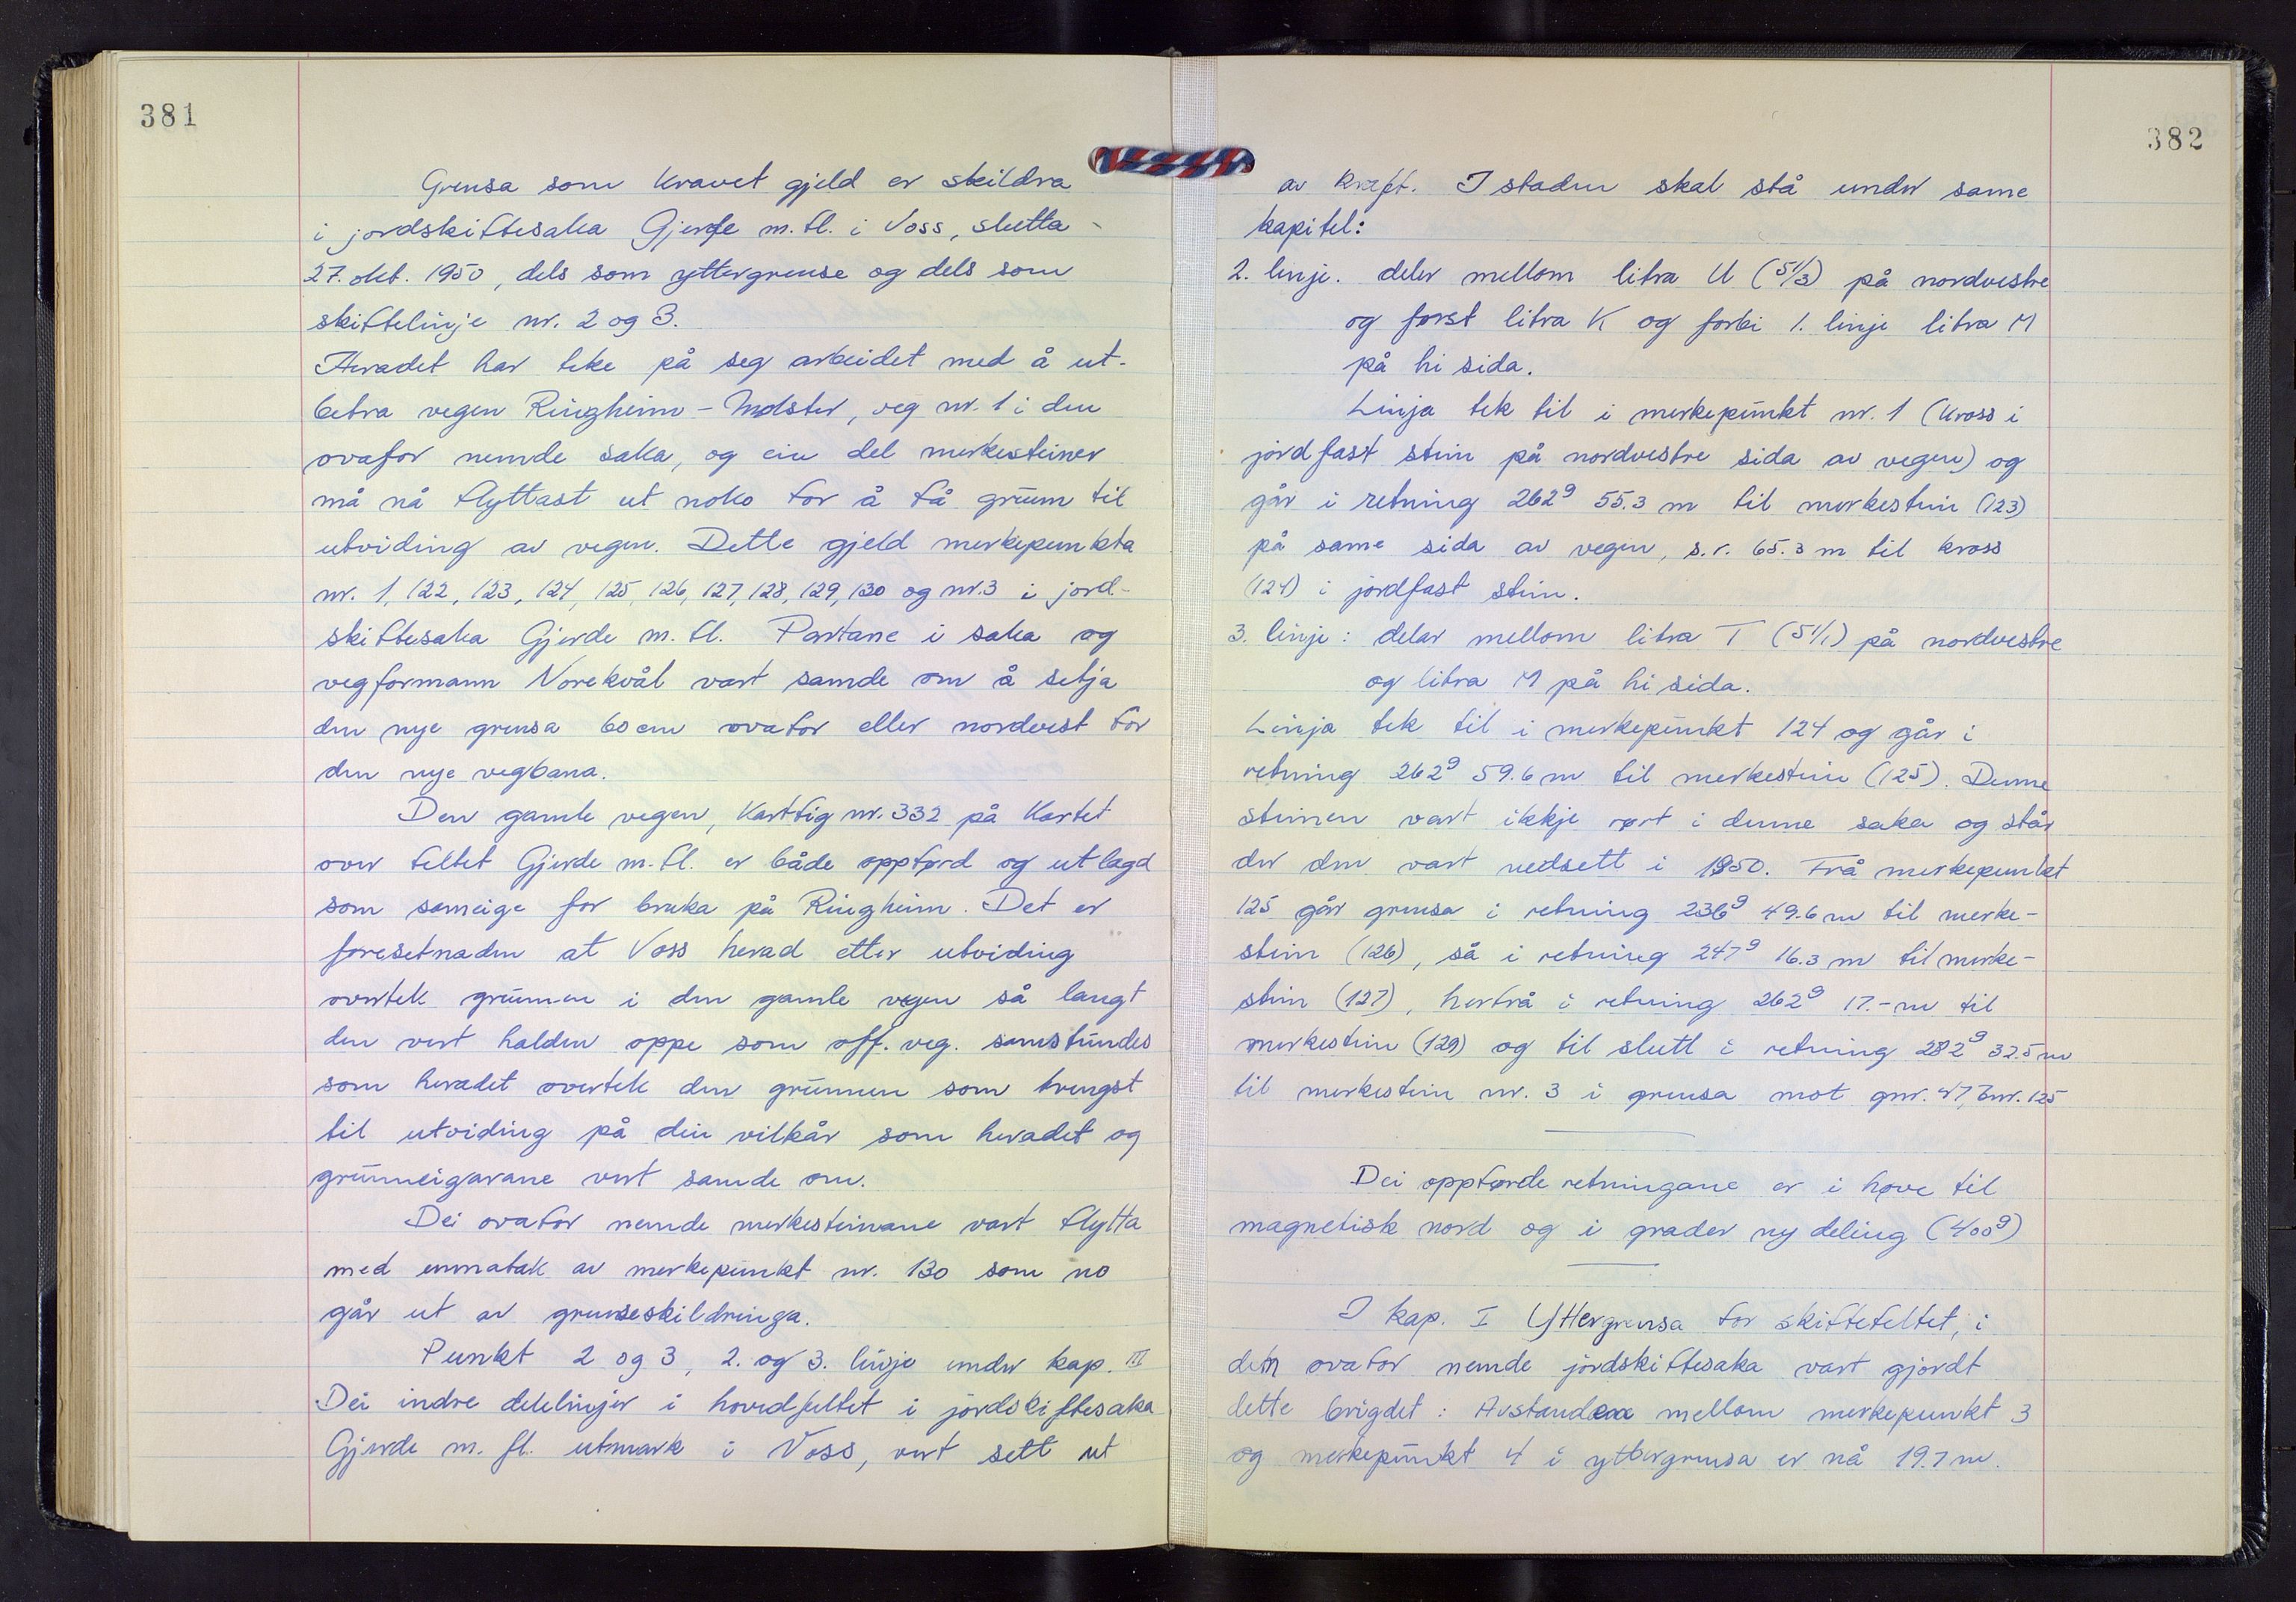 381
Grensa som kravet gjeld er skildra
i jordskiftesaka Gjerde m.fl. i Voss, slutta
27. okt. 1950, dels som yttergrense og dels som
skiftelinje nr. 2 og 3.
Heradet har teke på seg arbeidet med å ut-
betra vegen Ringheim - Mølster, veg nr. 1 i den
ovafor nemde saka, og ein del merkesteiner
må nå flyttast ut noko for å få grunn til
utviding av vegen. Dette gjeld merkepunkta
nr. 1, 122, 123, 124, 125, 126, 127, 128, 129, 130 og nr. 3 i jord-
skiftesaka Gjerde m. fl. Partane i saka og
vegformann Norekvål vart samde om å setja
den nye grensa 60 cm ovafor eller nordvest for
den nye vegbana.
Den gamle vegen, kartfig nr. 332 på kartet
over feltet Gjerde m. fl. er både oppførd og utlagd
som sameige for bruka på Ringheim. Det er
foresetnaden at Voss herad etter utviding
overtek grunnen i den gamle vegen så langt
den vert halden oppe som off. veg. samstundes
som heradet overtek den grunnen som trengst
til utviding på dei vilkår som heradet og
grunneigarane vert samde om.
Dei ovafor nemde merkesteinane vart flytta
med unnatak av merkepunkt nr. 130 som no
går ut av grenseskildringa.
Punkt 2 og 3, 2. og 3. linje under kap. III
Dei indre delelinjer i hovedfeltet i jordskiftesaka
Gjerde m. fl. utmark i Voss, vert sett ut
382
av kraft. I staden skal stå under same
kapitel:
2. linje. deler mellom litra U (51/3) på nordvestre
og først litra K og forbi 1. linje litra M
på hi sida.
Linja tek til i merkepunkt nr. 1 (kross i
jordfast stein på nordvestre sida av vegen) og
går i retning 262g 55.3 m til merkestein (123)
på same sida av vegen, s.r. 65.3 m til kross
(124) i jordfast stein.
3. linje: delar mellom litra T (51/1) på nordvestre
og litra M på hi sida.
Linja tek til i merkepunkt 124 og går i
retning 262g 59.6 m til merkestein (125). Denne
steinen vart ikkje rørt i denne saka og står
der den vart nedsett i 1950. Frå merkepunkt
125 går grensa i retning 236g 49.6 m til merke-
stein (126), så i retning 247g 16.3 m til merke-
stein (127), herfrå i retning 262g 17.- m til
merkestein (129) og til slutt i retning 282g 32.5 m
til merkestein nr. 3 i grensa mot gnr. 47, bnr. 125
Dei oppførde retningane er i høve til
magnetisk nord og i grader ny deling (400g)
I kap. I Yttergrensa for skiftefeltet, i
den ovafor nemde jordskiftesaka vart gjordt
dette brigdet: Avstanden mellom merkepunkt 3
og merkepunkt 4 i yttergrensa er nå 19.7 m.